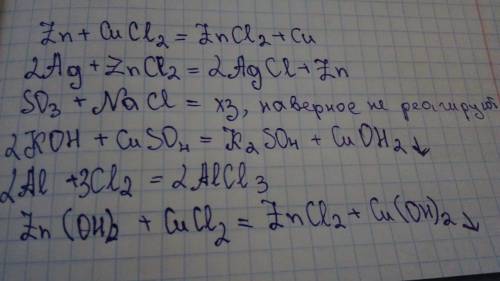 Zn + CuCl2 = ZnCl2 + Cu
2Ag + ZnCl2 = 2AgCl + Zn
SO3 + NaCl = хз, наверное не реагируют
2KOH + CuSO4 = K2SO4 + CuOH2↓
2Al + 3Cl2 = 2AlCl3
Zn(OH)2 + CuCl2 = ZnCl2 + Cu(OH)2↓